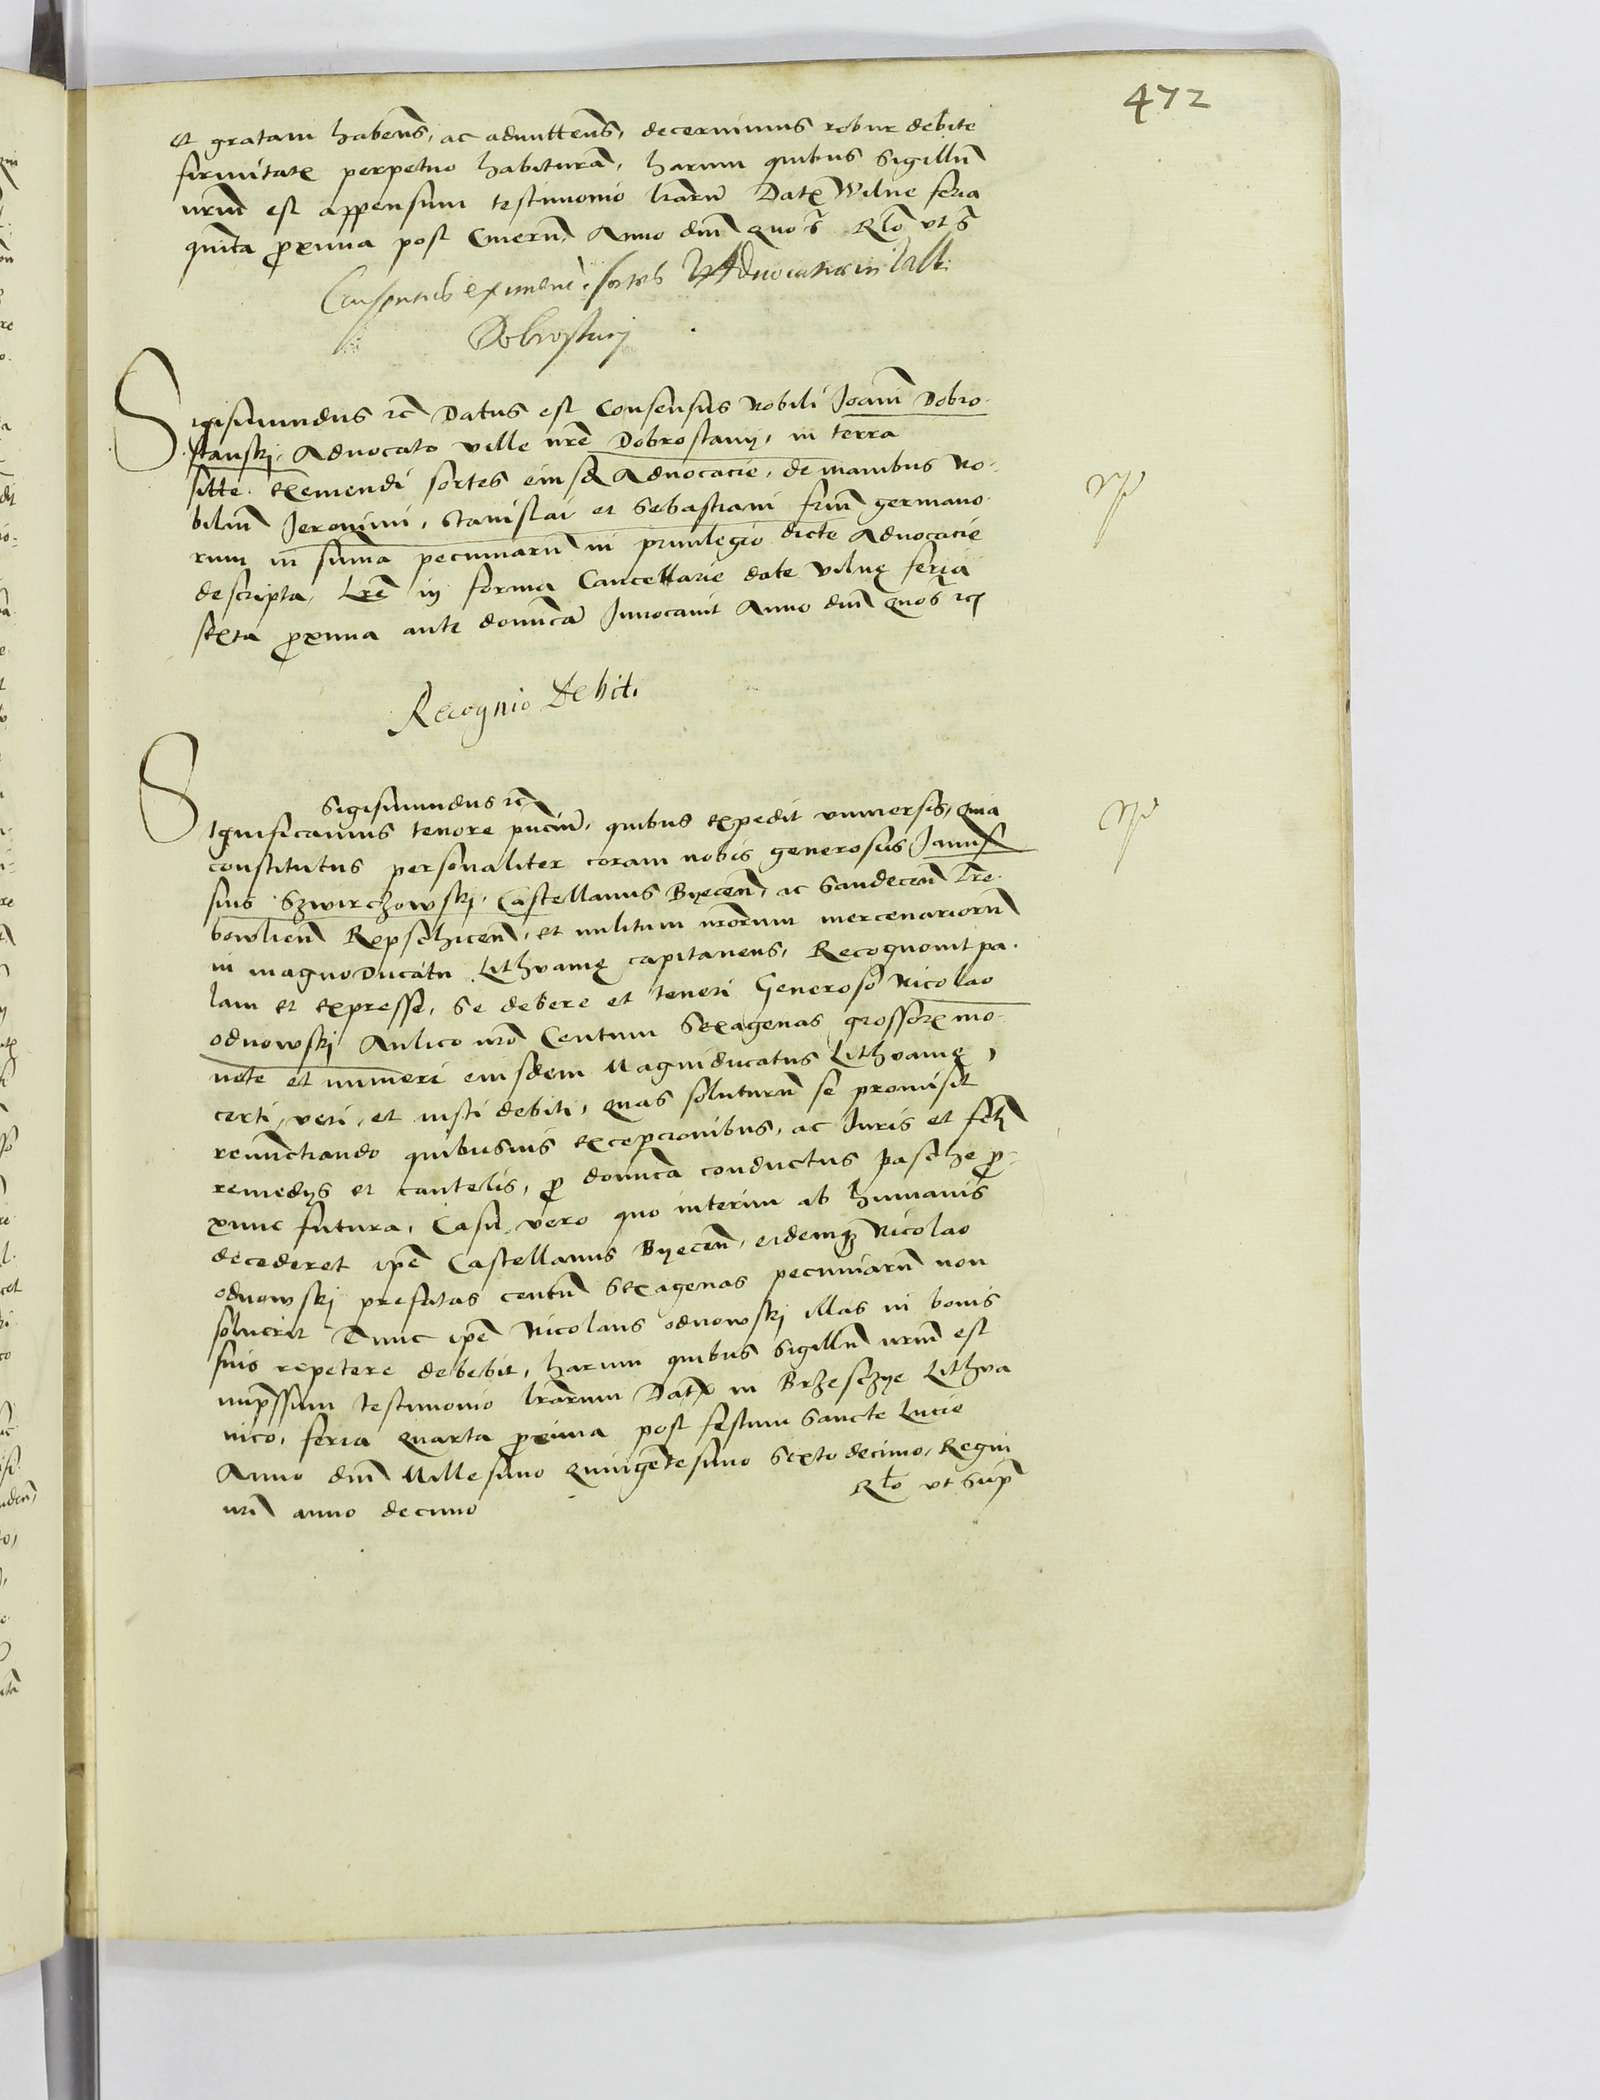 472
et gratam habens, ac admittens, decernimus robur debite
firmitatis perpetuo habituram, harum quibus Sigillum
nrum est appensum testimonio lrarum Datum Wilne feria
quinta proxima post Cinerum, Anno dni quo s. Rlo ut s
Consensus eximendi sortes Advocatie in vill
Dobrostanij
Sigismundus rc Datus est Consensus Nobili Joanni Dobro-
stanskj, Advocato ville nre Dobrostanij, in terra
sitte. exemendi sortes eiusdem Advocacie, de manibus No-
bilium Jeronimi, Stanislai et Sebastiani frum germano-
rum in suma pecuniarum in privilegio dicte Advocacie
descripta, Lre in forma Cancellarie date Vilnę feria
sexta proxima ante dominicam Invocavit Anno dni quo s rc
Recognicio Debiti
Sigismundus rc
Significamus tenore pncium, quibus expedit universis, quia
constitutus personaliter coram nobis generosus Janus
sius Szwirczowskj, Castellanus Byecen, ac Sandecen Tre-
bowlien Repsehicen, et militum nrorum mercenariorum
in magno Ducatu Lithvanię capitaneus, Recognovit pa-
lam et expresse, Se debere et teneri Generoso Nicolao
odnowskj Aulico nro Centum Sexagenas grossorum mo-
nete et numeri eiusdem Magniducatus Lithvanię,
certi, veri, et iusti debiti, quas soluturum se promisit
renunctiando quibusvis excepcionibus, ac Juris et fcti
remedijs et cautelis, pro dominica conductus pasche pro-
xime futura, Casu vero quo interim ab humanis
decederet ipse Castellanus Byecen, eidemque Nicolao
odnowskj prefatas centum Sexagenas pecuniarum non
solverit Tunc ipse Nicolaus odnowskj illas in bonis
suis repetere debebit, harum quibus Sigillum nrum est
impressum testimonio lrarum Datum in Brzesczye Lithva
nico, feria quarta proxima post festum Sancte Lucie
Anno dni Millesimo quingentesimo Sexto decimo, Regni
nri anno decimo Rlo ut Supra